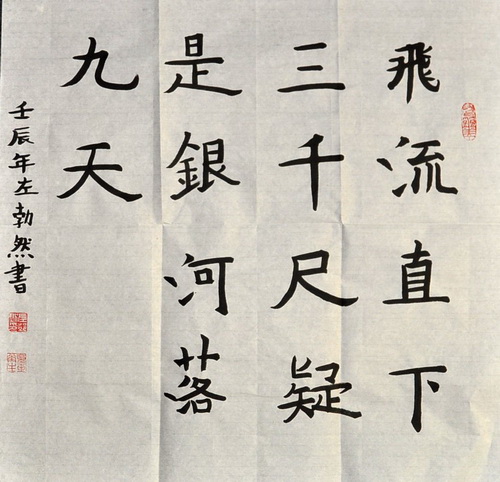 飛流直下
三千尺疑
是銀河落
九天
壬辰年左勃然書